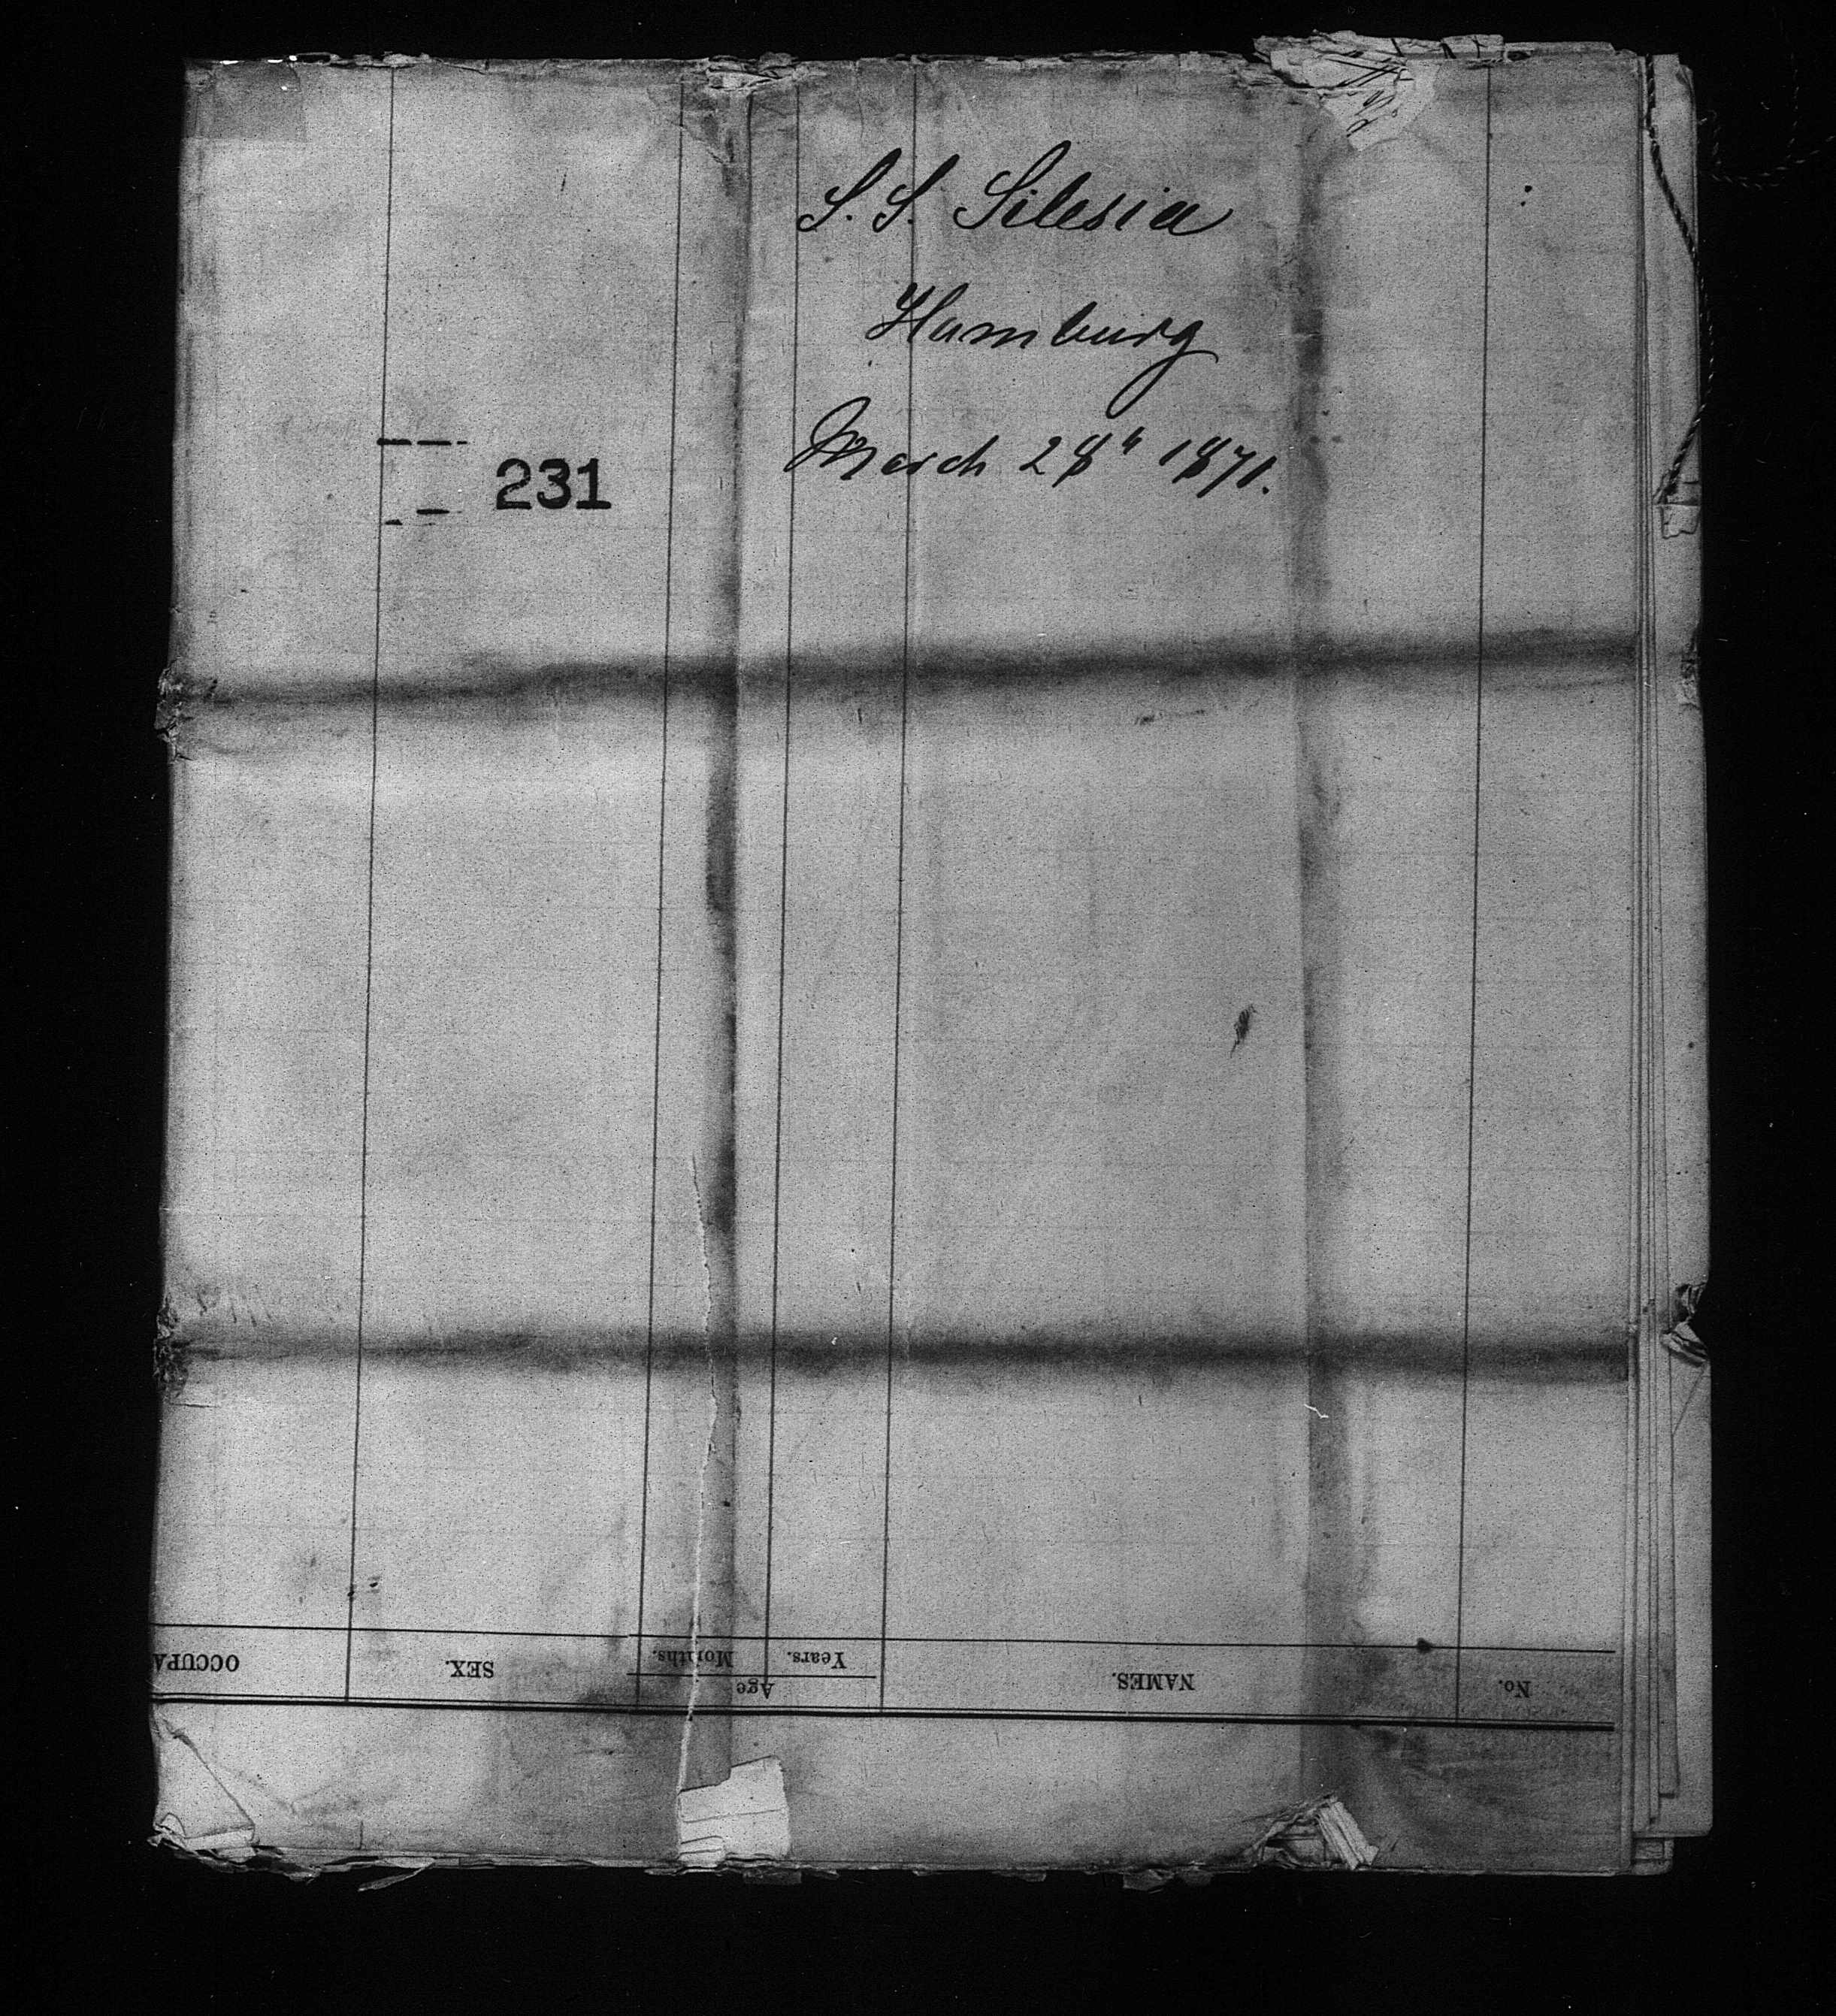 S. S. Silesia
Hamburg
March 28th 1871.
231
No. NAMES. Age Years. Months. SEX. OCCUPA